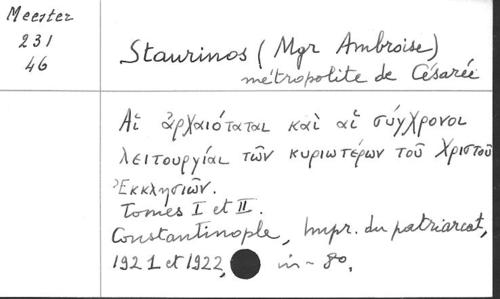 Meester
231
46
Staurinos (Mgr Ambroise)
métropolite de Césarée
Αἱ ἀρχαιόταται καὶ αἱ σύγχρονοι
λειτουργίαι τῶν κυριωτέρων τοῦ Χριστοῦ
Ἐκκλησιῶν.
Tomes I et II.
Constantinople, Impr. du patriarcat,
1921 et 1922, in-8o.